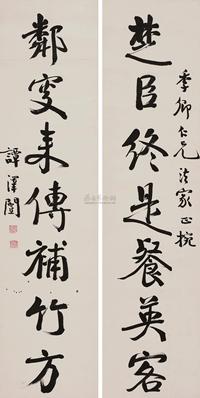 季卿仁兄法家正捥
楚臣終是餐英客
鄰叟来傳補竹方
譚澤闓